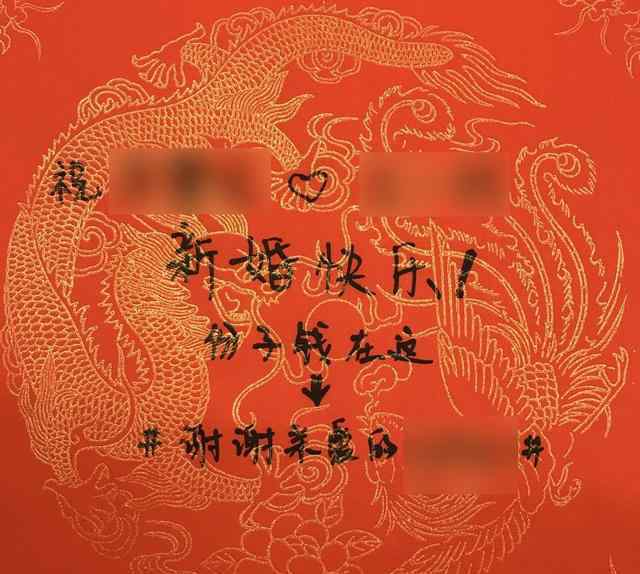 祝 ♡
新婚快乐!
份子钱在这
↓
#谢谢朱霞的 #